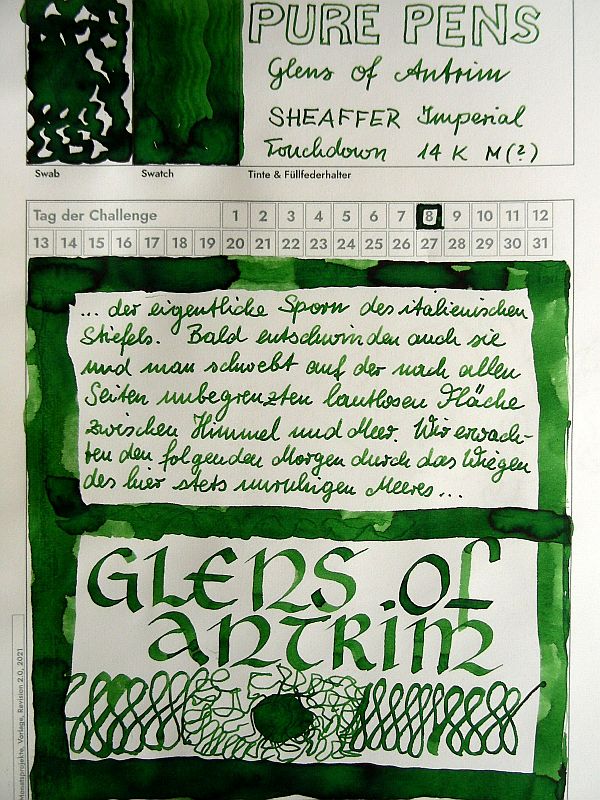 PURE PENS
Glens of Antrim
SHEAFFER Imperial
Touchdown 14 K M(?)
Swab Swatch Tinte & Füllfederhalter
Tag der Challenge 1 2 3 4 5 6 7 8 9 10 11 12
13 14 15 16 17 18 19 20 21 22 23 24 25 26 27 28 29 30 31
... der eigentliche Sporn des italienischen
Stiefels. Bald entschwinden auch sie
und man schwebt auf der nach allen
Seiten unbegrenzten lautlosen Fläche
zwischen Himmel und Meer. Wir erwach-
ten den folgenden Morgen durch das Wiegen
des hier stets unruhigen Meeres...
GLENS OF
ANTRIM
Monatsprojekte, Vorlage, Revision 2.0, 2021